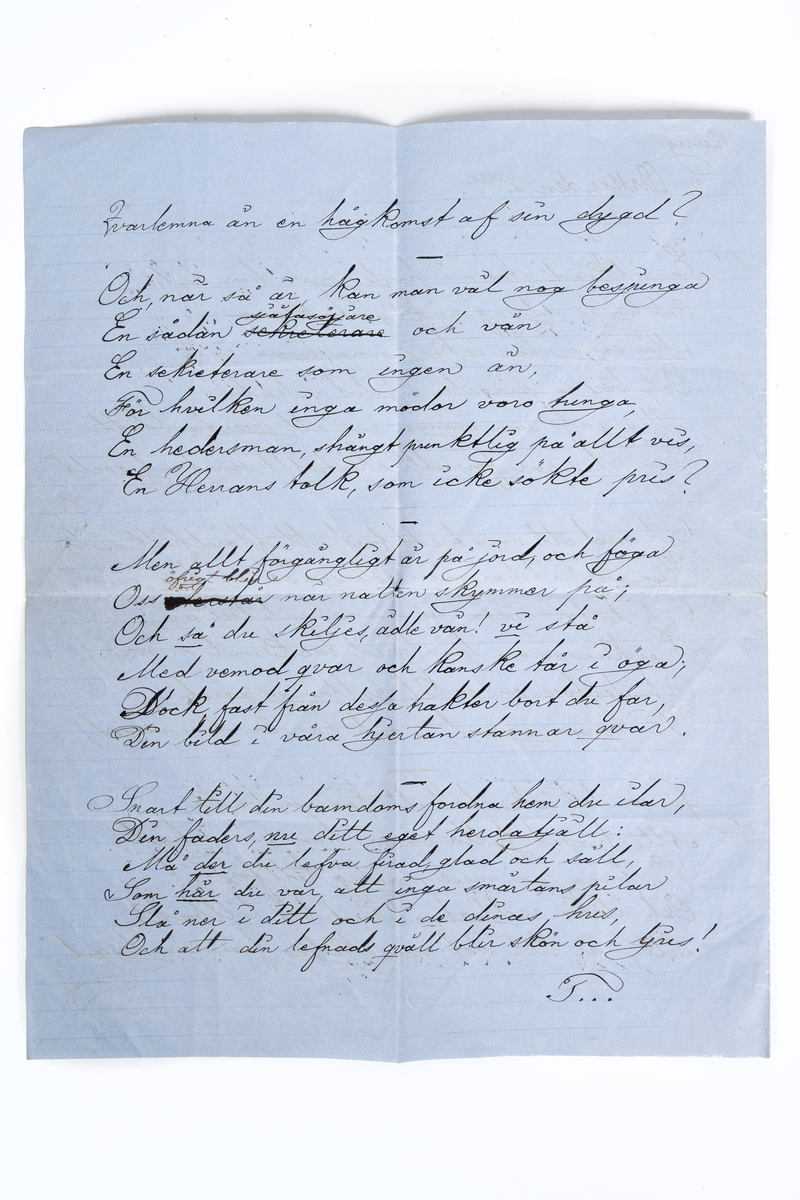 Qvarlemna än en hågkomst af sin dygd?
Och, när så är, kan man väl nog besjunga
själasörjare
En sådan sekreterare och vän,
En sekreterare som ingen än,
För hvilken inga mödor voro tunga,
En hedersman, strängt punktlig på allt vis,
En Herrans tolk, som icke sökte pris?
Men allt förgängligt är på jord, och föga
öfrigt blir
Oss återstår när natten skymmer på;
Och så du skiljes, ädle vän! vi stå
Med vemod qvar och kanske tår i öga;
Dock fast från dessa trakter bort du far,
Din bild i våra hjertan stannar qvar.
Snart till din barndoms fordna hem du ilar,
Din faders, nu ditt eget herdatjäll:
Må der du lefva firad, glad och säll,
Som här du var, att inga smärtans pilar
Slå ner i ditt och i de dinas hus,
Och att din lefnads qväll blir skön och ljus!
T...